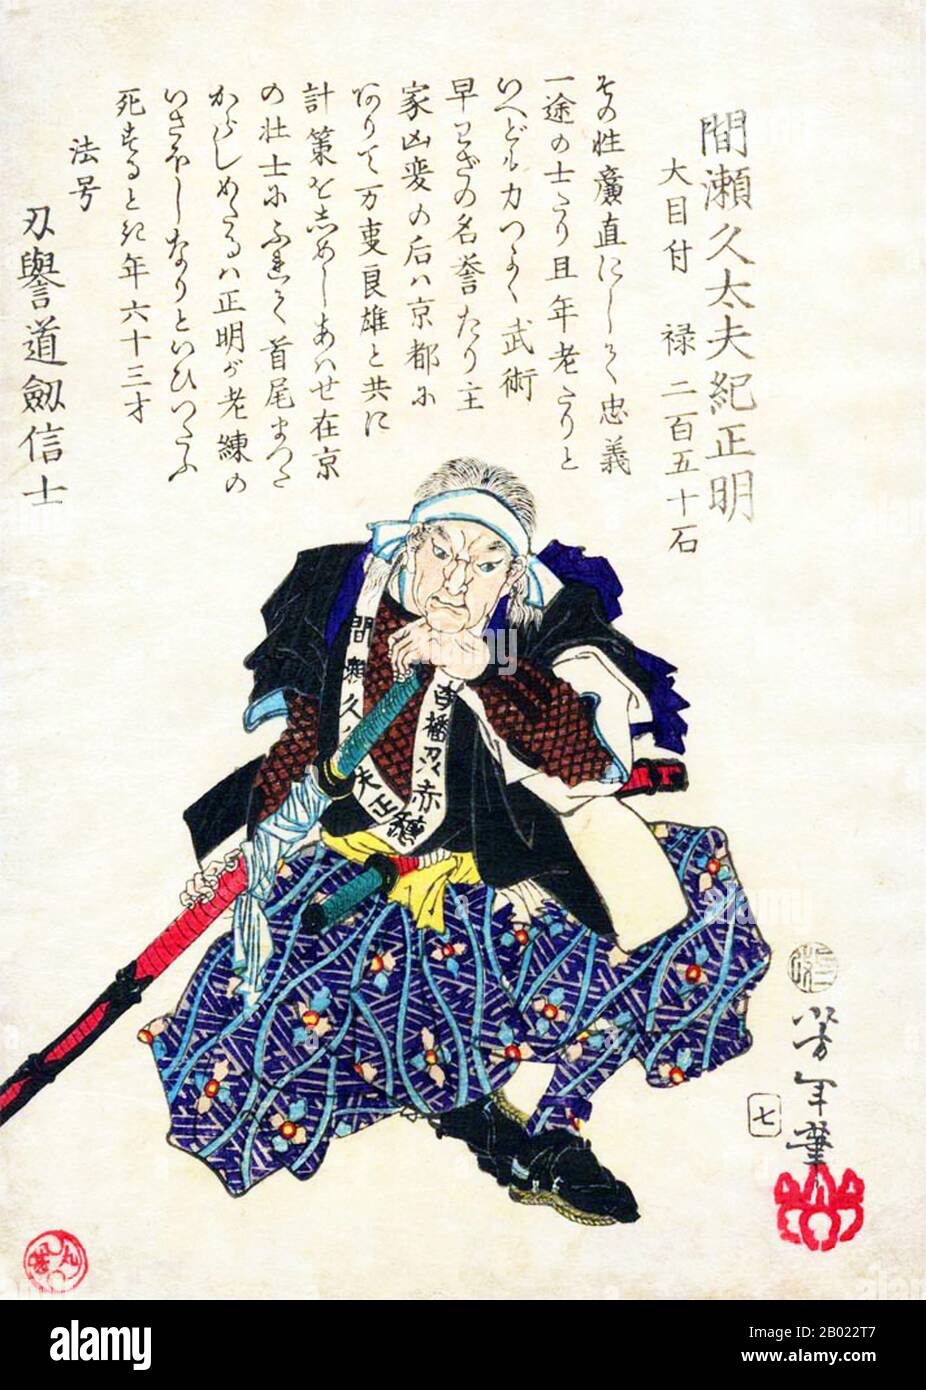 間瀬久太夫紀正明
大目付 禄 二百五十石
その性廣直にして忠義
一途の士たり且年老たりと
いへども力つよく武術
早わざの名誉たり主
家凶変の后ハ京都に
ありて万吏良雄と共に
計策を志めしあハせ在京
の壮士にふれて首尾まつた
からしめたるハ正明が老練の
いさほしなりといひつたふ
死するとき年六十三才
法号
刃譽道劔信士
間瀬久太夫正明
播州赤穂
芳年筆
七
alamy
alamy
Image ID: 2B022T7
www.alamy.com